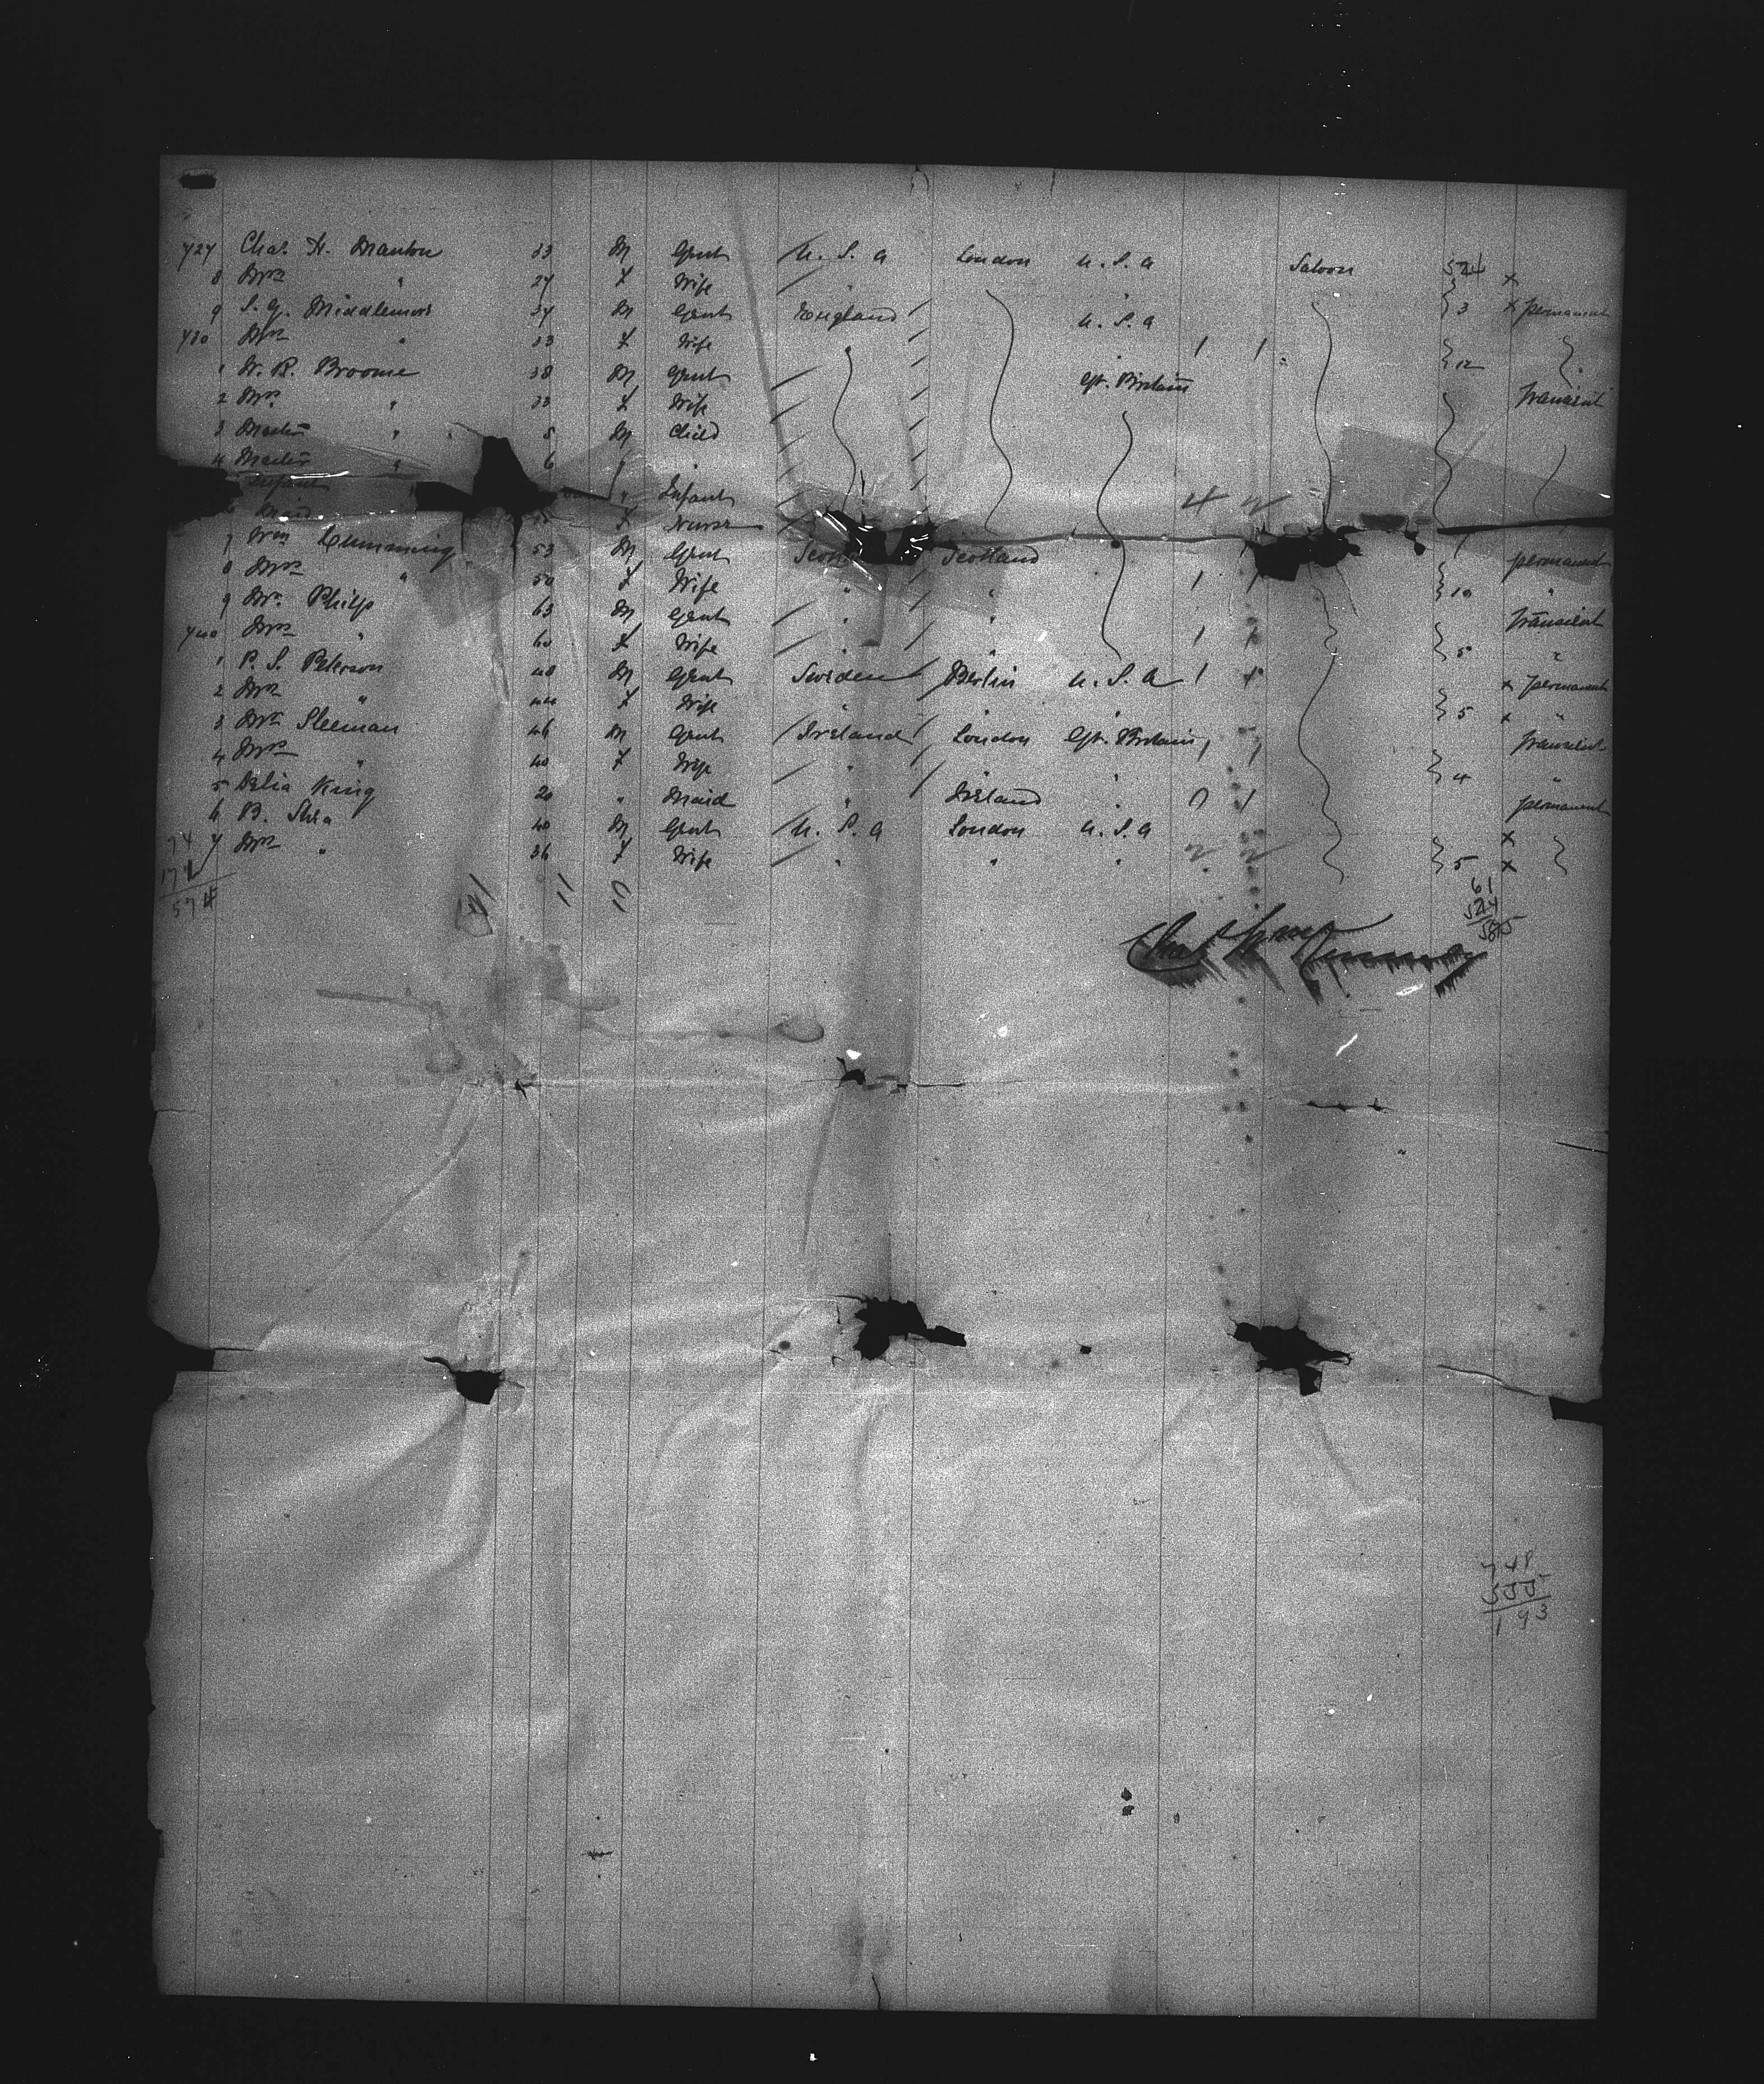 727 Chas. H. Manton 33 M Gent U. S. A London U. S. A Saloon 524 x
8 Mrs " 27 F Wife " "
9 S. G. Middlemore 34 M Gent England U. S. A } 3 x permanent
730 Mrs " 33 F Wife " 1 1
1 W. R. Broome 38 M Gent Gt. Britain } 12
2 Mrs " 33 F Wife Transient
3 Master " 8 M Child
4 Master " 6 " "
5 Infant " " Infant 4
6 Maid F Nurse
7 Wm Cumming 53 M Gent Scot Scotland permanent
8 Mrs " 50 F Wife " " 1 1 } 10 "
9 Mr. Philp 63 M Gent " " Transient
740 Mrs " 60 F Wife " " 1 1 } 5 "
1 P. S. Peterson 48 M Gent Sweden Berlin U. S. A 1 1 x permanent
2 Mrs " 44 F Wife " " " } 5 x "
3 Mr. Sleeman 46 M Gent Ireland London Gt. Britain 1 1 Transient
4 Mrs " 40 F Wife " " " } 4 "
5 Delia King 20 " Maid " Ireland " 0 1 permanent
6 B. Shea 40 M Gent U. S. A London U. S. A x
7 Mrs " 36 F Wife " " " 2 2 } 5 x
74
174
574
11 10
61
524
585
748
555
193